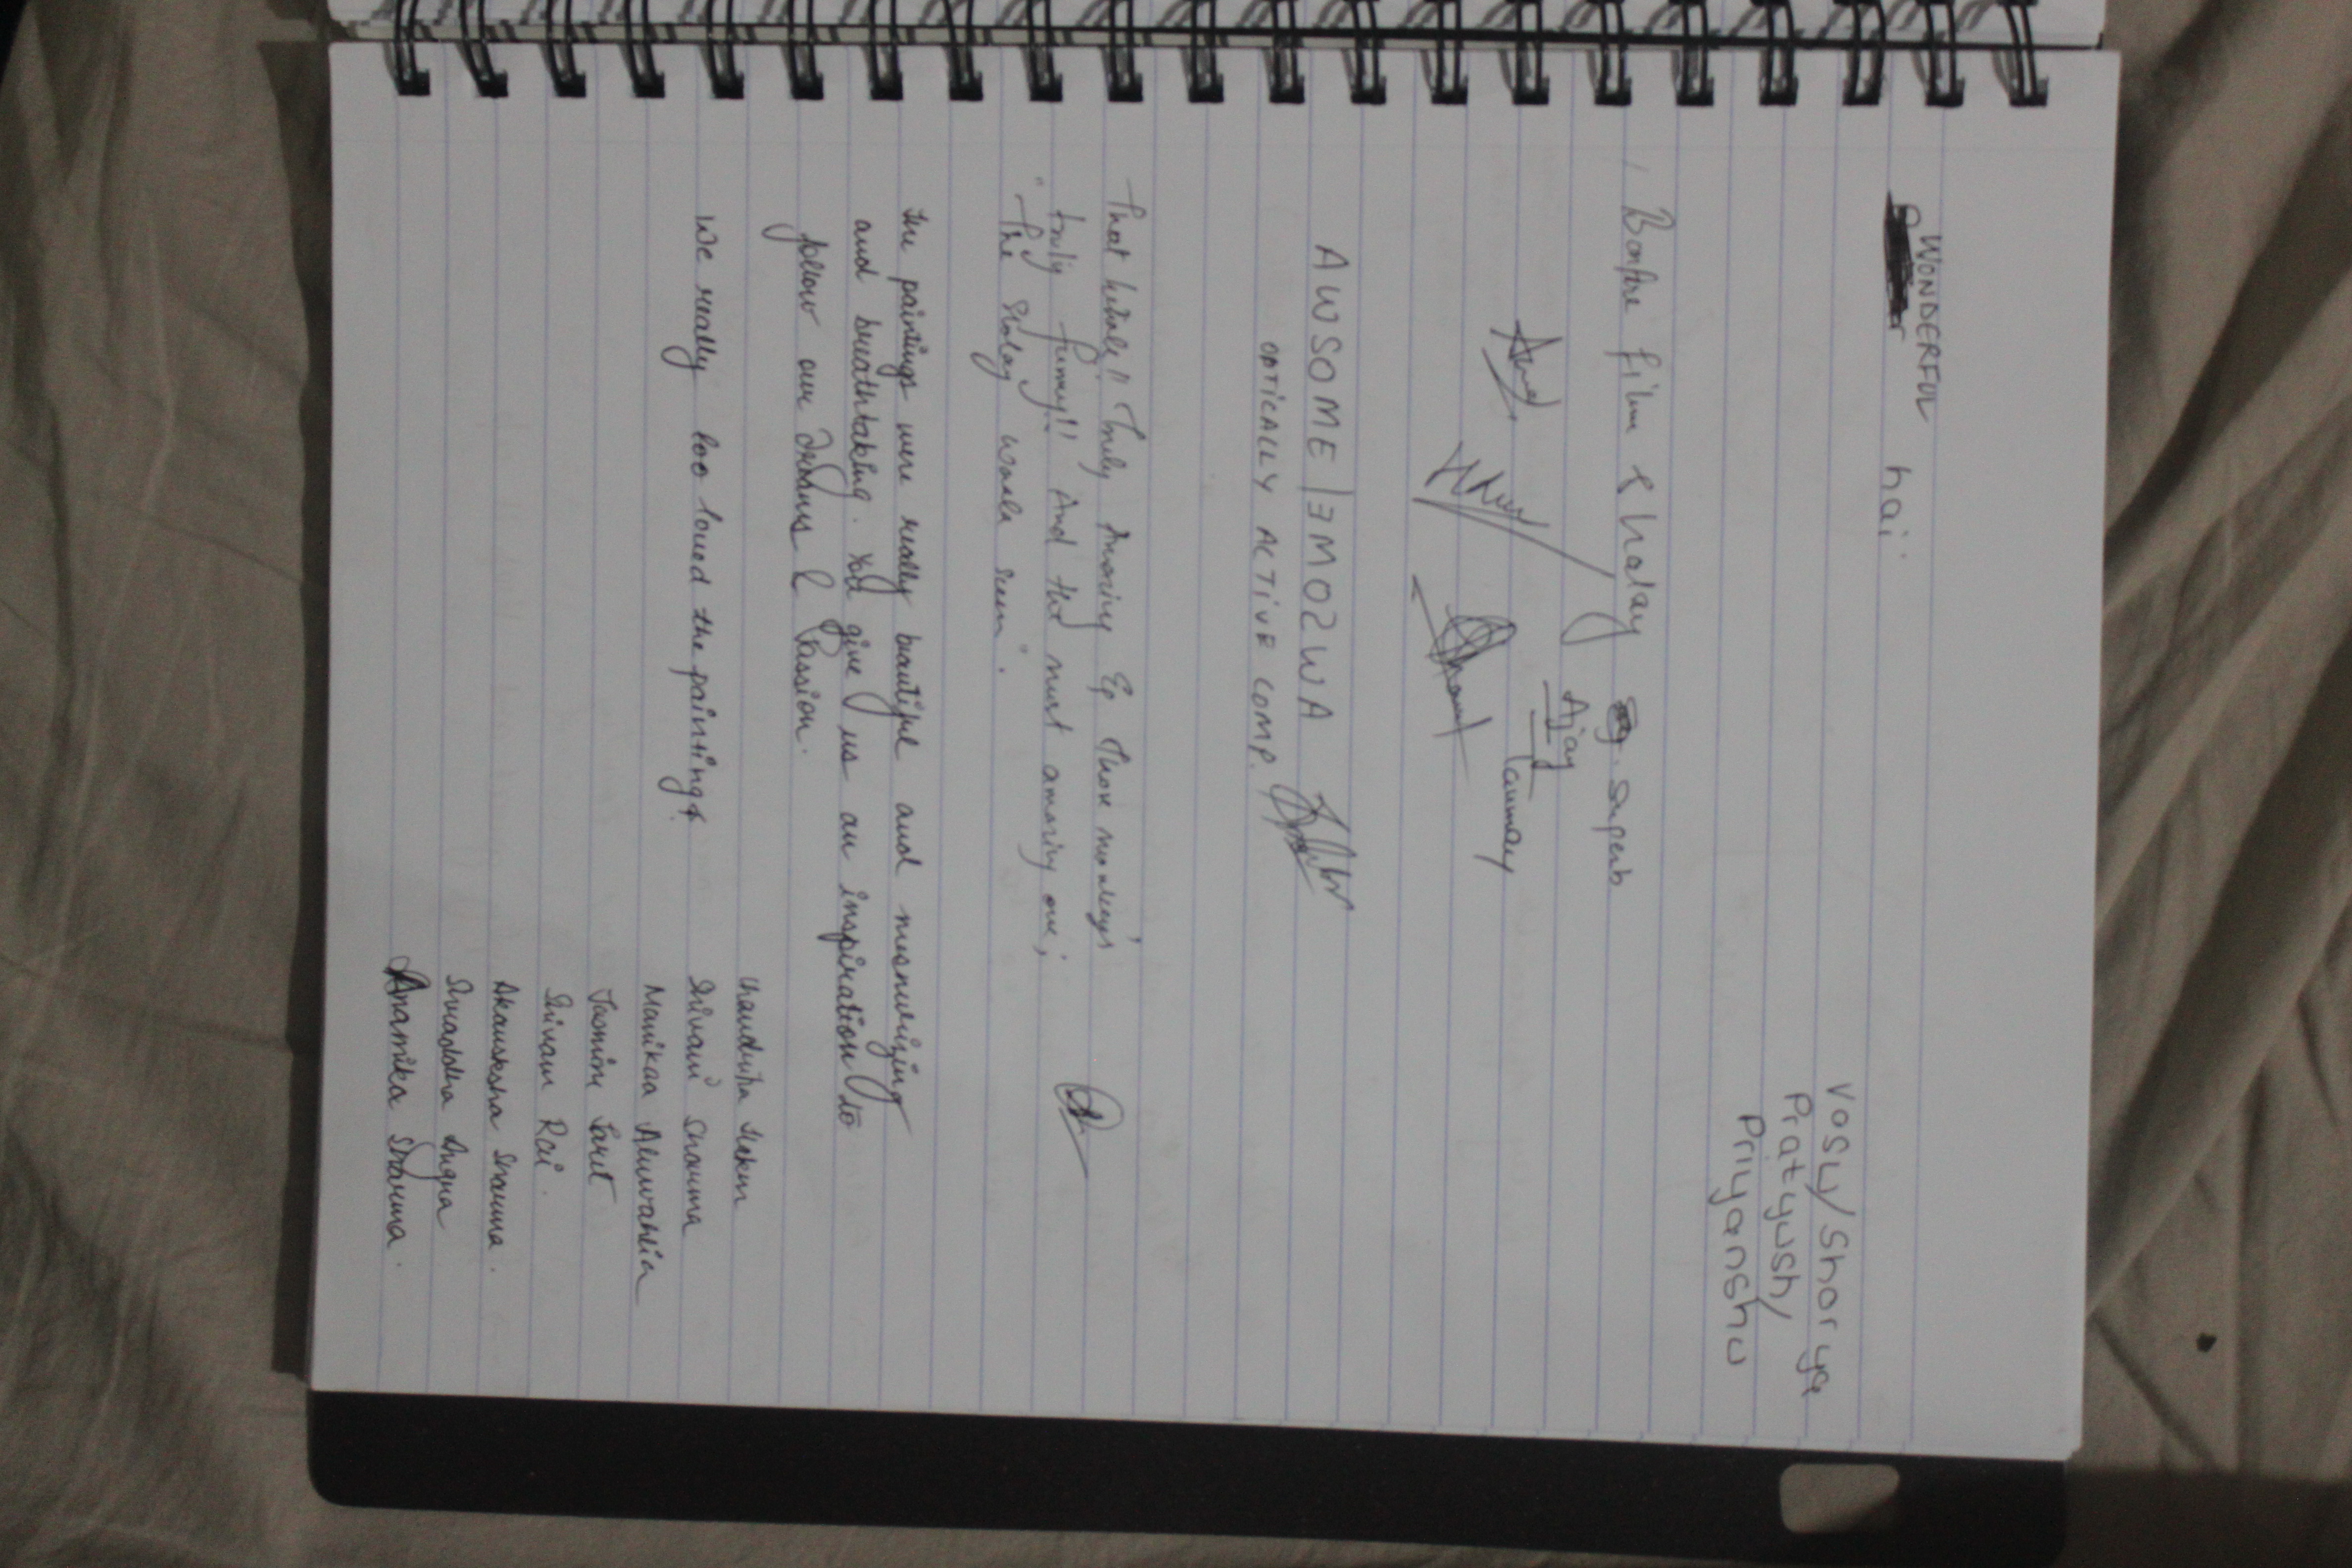 WONDERFUL
hai
Vasu/Shorya
Pratyush/
Priyanshu
Bonfire film & halay superb
Ajay
Tanmay
AWSOME|ƎMOƧWA
OPTICALLY ACTIVE COMP.
that Truly Amazing Those monkeys
truly funny!! And the most amazing one;
"The world seen".
The paintings were really beautiful and mesmerizing
and breathtaking. You give us an inspiration to
follow our dreams & Passion.
We really loo loved the paintings
Shivani Sharma
Manikaa Ahuwahlia
Jasmine
Shivam Rai.
Akanshksha Sharma.
Shraddha
Anamika Sharma.